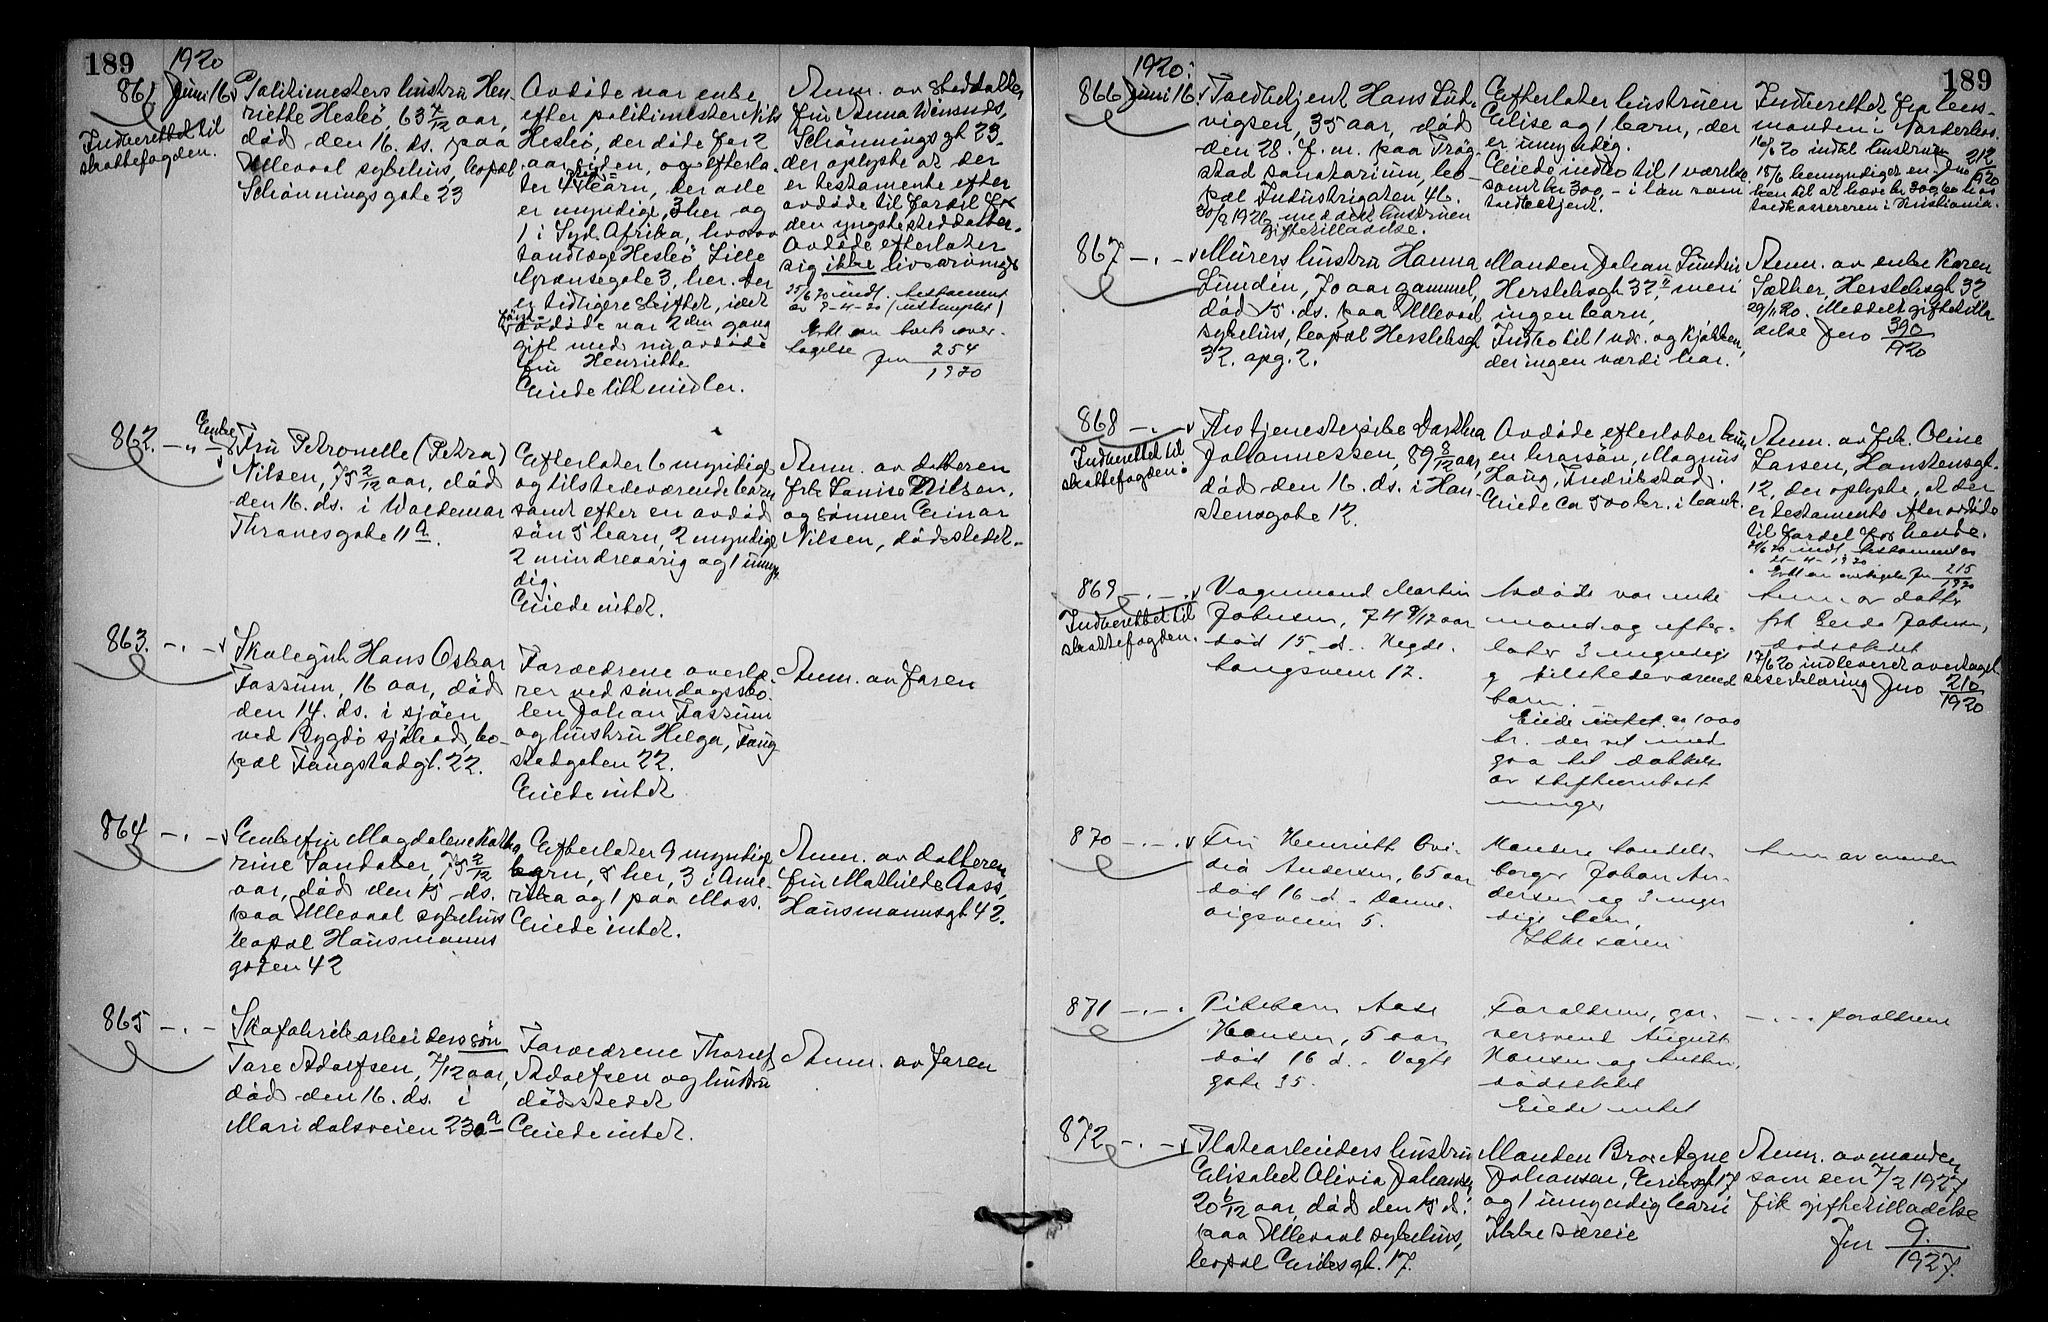 189
1920
861 Juni 16
Indberettet til
skattefogden.
Politimesters hustru Hen-
riette Heslö, 63 2/12 aar,
död den 16. ds. paa
Ullevaal sykehus, bopæl
Schönningsgate 23
Avdöde var enke
efter politimester Nils
Heslö, der döde for 2
aar siden, og efterla-
ter 4 barn, der alle
er myndige, 3 her og
1 i Syd Afrika, hvorav
tandlæge Heslö Lille
Grænsegate 3, her. Der
er tidligere skiftet, idet
avdöde var 2den gang
gift med nu avdöde
fru Henriette
Eiede litt midler.
Anm. av steddatter
fru Anna
Schönningsgt 23.
der oplyste at der
er testamente efter
avdöde til fordel for
den yngste steddatter.
Avdöde efterlater
sig ikke livsarvinger
25/6 20 indl. testament
av 9-4-20
tagelse Jnr 254
1920
862. - " -
Enke
Fru Petronelle (Petra)
Nilsen, 75 2/12 aar, död
den 16. ds. i Waldemar
Thranesgate 11a.
Efterlater 6 myndige
og tilstedeværende barn
samt efter en avdöd
sön 5 barn, 2 myndige
2 mindreaarig og 1 umyn
dig.
Eiede intet.
Anm. av datteren
frk Louise Nilsen,
og sönnen Einar
Nilsen, dödsstedet.
863. - . -
Skolegut Hans Oskar
Fossum, 16 aar, död
den 14. ds. i sjöen
ved Bygdö sjöbad, bo-
pæl Fougstadgt. 22.
Forældrene overlæ-
rer ved söndagssko-
len Johan Fossum
og hustru Helga, Foug
stadgaten 22.
Eiede intet
Anm. av faren
864 - . -
Enkefru Magdalene Katha
rine Sandaker, 75 2/12
aar, död den 15 ds.
paa Ullevaal sykehus
bopæl Hausmanns
gaten 42
Efterlater 9 myndige
barn, 5 her, 3 i Ame-
rika og 1 paa Moss.
Eiede intet.
Anm. av datteren
fru Mathilde Aass,
Hausmannsgt 42.
865 - . -
Skofabrikarbeiders sön
Tore Adolfsen, 7/12 aar,
död den 16. ds. i
Maridalsveien 230a
Forældrene Thorulf
Adolfsen og hustru
dödsstedet
Eiede intet.
Anm. av faren
189
1920.
866 Juni 16
Toldbetjent Hans Lud-
vigsen, 35 aar, död
den 28. f. m. paa Trög-
stad sanatorium, bo-
pæl Industrigaten 46.
20/9 1921 meddelt hustruen
giftetilladelse.
Efterlater hustruen
Elise og 1 barn, der
er umyndig.
Eiede indbo til 1 værelse
samt kr 300,- i lön som
toldbetjent.
Indberettet fra lens-
manden i
16/6 20 indtil hustruen Jnr 212
1920
18/6 bemyndiget en
ken til at hæve kr 300,60 hos
toldkassereren i Kristiania.
867 - . -
Murers hustru Hanna
Lundin, 70 aar gammel,
död 15. ds. paa Ullevaal
sykehus, bopæl Herslebsgt
32. opg. 2.
Manden Johan Lundin
Herslebsgt 32, men
ingen barn,
Indbo til 1 vær. og kjökken,
der ingen værdi har.
Anm. av enke Karen
Sæther, Herslebsgt 32
29/11 20. Meddelt giftetilla
delse Jnr 390
1920
868 - . -
Indberettet til
skattefogden.
Fhv tjenestepike Dorthea
Johannessen, 89 8/12 aar,
död den 16. ds. i Han-
stensgate 12.
Avdöde efterlater kun
en brorsön, Magnus
Haug, Fredrikstad.
Eiede ca 500 kr. i bank.
Anm. av frk. Oline
Larsen, Hanstensgt.
12, der oplyste, at der
er testamente efter avdöde
til fordel for hende.
indl. testament av
21-4-1920
Jnr 215
1920
869 - . -
Indberettet til
skattefogden.
Vognmand Martin
Johnsen, 74 9/12 aar
död 15. d. Hegde-
haugsveien 12.
Avdöde var enke
mand og efter-
later 3 myndige
og tilstedeværende
barn.
Eiede intet ca 1000
kr. der vil med
gaa til dækkelse
av
anm. av datter
frk Gerda Johnsen,
dödsstedet
17/6 20 indleveret overtagel
seserklæring Jnr 210
1920
870 - . -
Fru Henriette Ovi-
dia Andersen, 65 aar
död 16 d. Danne-
vigsveien 5.
Manden handels-
borger Johan An-
dersen og 3 myn
dige barn,
Ikke særeie
Anm av manden
871 - . -
Pikebarn Aase
Hansen, 5 aar
död 16 d. Vogts
gate 35.
Forældrene, gar-
versvend August
Hansen og hustru,
dödsstedet
Eiede intet
- . - forældrene
872 - . -
Platearbeiders hustru
Elisabet Olivia Johansen,
20 6/12 aar, död den 15 d.
paa Ullevaal sykehus,
bopæl Eiriksgt. 17.
Manden Bror Agne
Johansen, Eiriksgt 17
og 1 umyndig barn
Ikke særeie
Anm. av manden
som den 7/2 1927
fik giftetilladelse
Jnr 9.
1927.